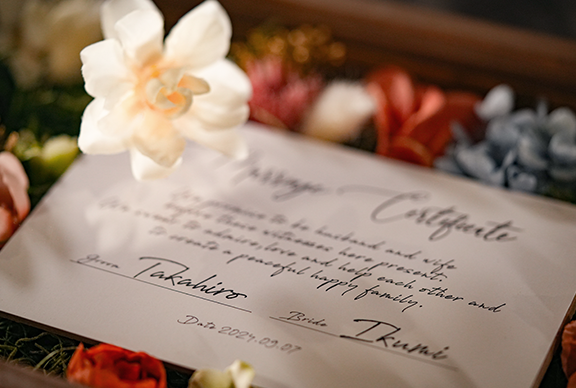 Marriage Certificate
We promise to be husband and wife
before these witnesses here present.
We vow to admire, love and help each other and
to create a peaceful happy family.
Groom Takahiro
Bride Ikumi
Date 2024.09.07